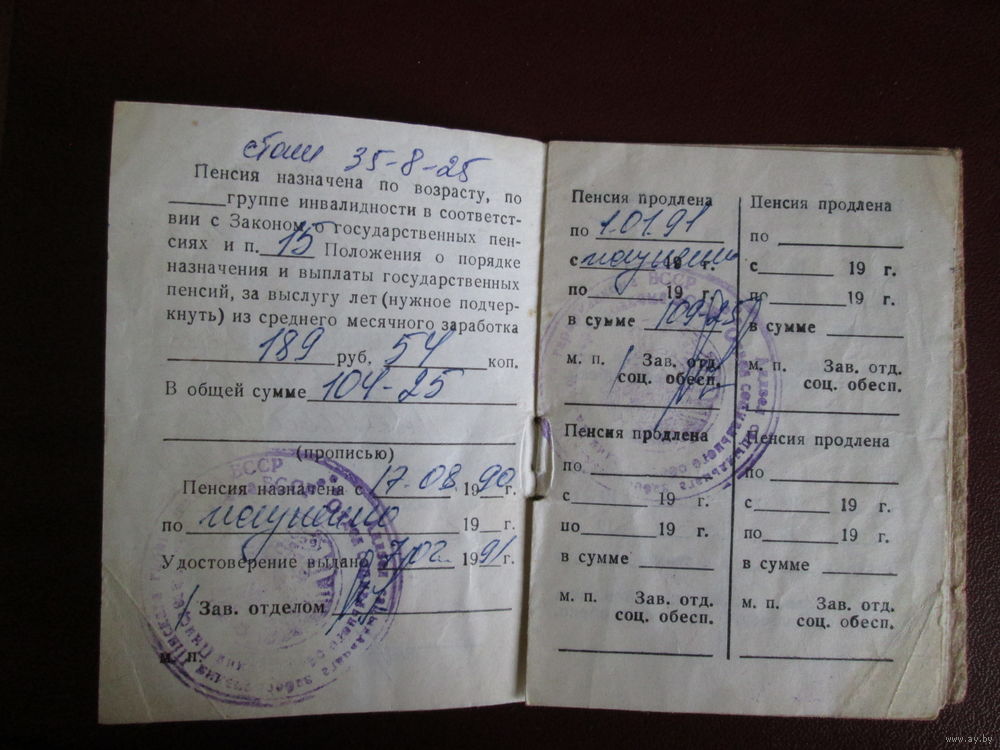 стаж 35-8-25
Пенсия назначена по возрасту, по
группе инвалидности в соответст-
вии с Законом о государственных пен-
сиях и п. 15 Положения о порядке
назначения и выплаты государственных
пенсий, за выслугу лет (нужное подчер-
кнуть) из среднего месячного заработка
189 руб. 54 коп.
В общей сумме 104-25
(прописью)
Пенсия назначена с 17.08.1990г.
по пожизненно 19 г.
Удостоверение выдано 7/02 1991г.
Зав. отделом
м. п.
БССР
Пенсия продлена
по 1.01.91
с пожизненно 19 г.
по 19 г.
в сумме 109-25
м. п. Зав. отд.
соц. обесп.
Пенсия продлена
по
с 19 г.
по 19 г.
в сумме
м. п. Зав. отд.
соц. обесп.
БССР
Пенсия продлена
по
с 19 г.
по 19 г.
в сумме
м. п. Зав. отд.
соц. обесп.
Пенсия продлена
по
с 19 г.
по 19 г.
в сумме
м. п. Зав. отд.
соц. обесп.
www.ay.by